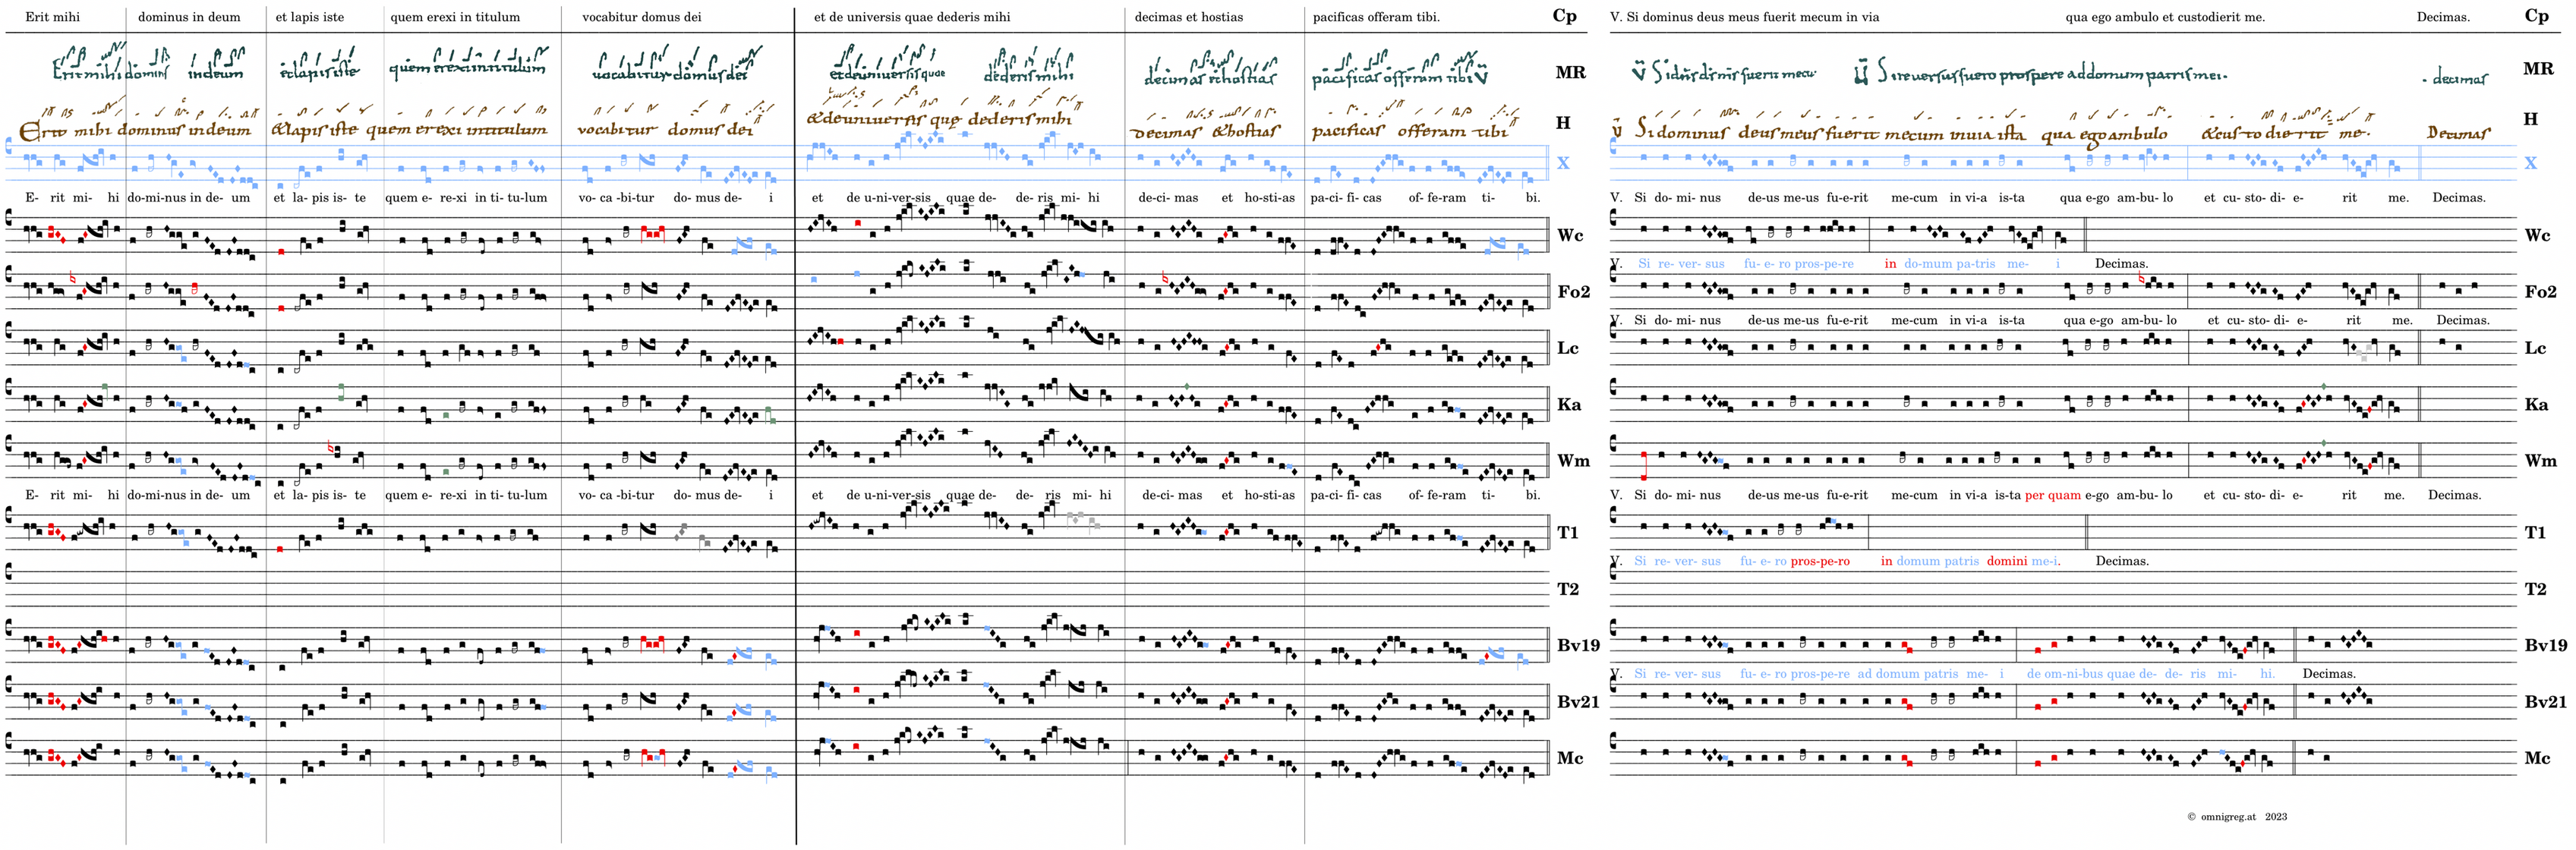 Erit mihi dominus in deum et lapis iste quem erexi in titulum vocabitur domus dei et de universis quae dederis mihi decimas et hostias pacificas offeram tibi. Cp V. Si dominus deus meus fuerit mecum in via qua ego ambulo et custodierit me. Decimas. Cp
Erit mihi dominus in deum et lapis iste quem erexi in titulum vocabitur domus dei et de universis quae dederis mihi decimas et hostias pacificas offeram tibi V MR
V Si reversus fuero prospere ad domum patris mei. decimas MR
Erit mihi dominus in deum & lapis iste quem erexi in titulum vocabitur domus dei & de universis quę dederis mihi decimas & hostias pacificas offeram tibi H V Si dominus deus meus fuerit mecum in via ista qua ego ambulo & custodierit me. Decimas H
X X
E- rit mi- hi do-mi-nus in de- um et la- pis is- te quem e- re-xi in ti- tu-lum vo- ca -bi-tur do- mus de- i et de u-ni-ver-sis quae de- de- ris mi- hi de-ci- mas et ho-sti-as pa-ci- fi- cas of- fe-ram ti- bi. V. Si do- mi- nus de-us me-us fu-e-rit me-cum in vi-a is-ta qua e-go am-bu- lo et cu- sto- di- e- rit me. Decimas.
Wc Wc
V. Si re- ver- sus fu- e- ro pros-pe-re in do-mum pa-tris me- i Decimas.
Fo2 Fo2
V. Si do- mi- nus de-us me-us fu-e-rit me-cum in vi-a is-ta qua e-go am-bu- lo et cu- sto- di- e- rit me. Decimas.
Lc Lc
Ka Ka
Wm Wm
E- rit mi- hi do-mi-nus in de- um et la- pis is- te quem e- re-xi in ti- tu-lum vo- ca -bi-tur do- mus de- i et de u-ni-ver-sis quae de- de- ris mi- hi de-ci- mas et ho-sti-as pa-ci- fi- cas of- fe-ram ti- bi. V. Si do- mi- nus de-us me-us fu-e-rit me-cum in vi-a is-ta per quam e-go am-bu- lo et cu- sto- di- e- rit me. Decimas.
T1 T1
V. Si re- ver- sus fu- e- ro pros-pe-ro in domum patris domini me-i. Decimas.
T2 T2
Bv19 Bv19
V. Si re- ver- sus fu- e- ro pros-pe-re ad domum patris me- i de om-ni-bus quae de- de- ris mi- hi. Decimas.
Bv21 Bv21
Mc Mc
© omnigreg.at 2023